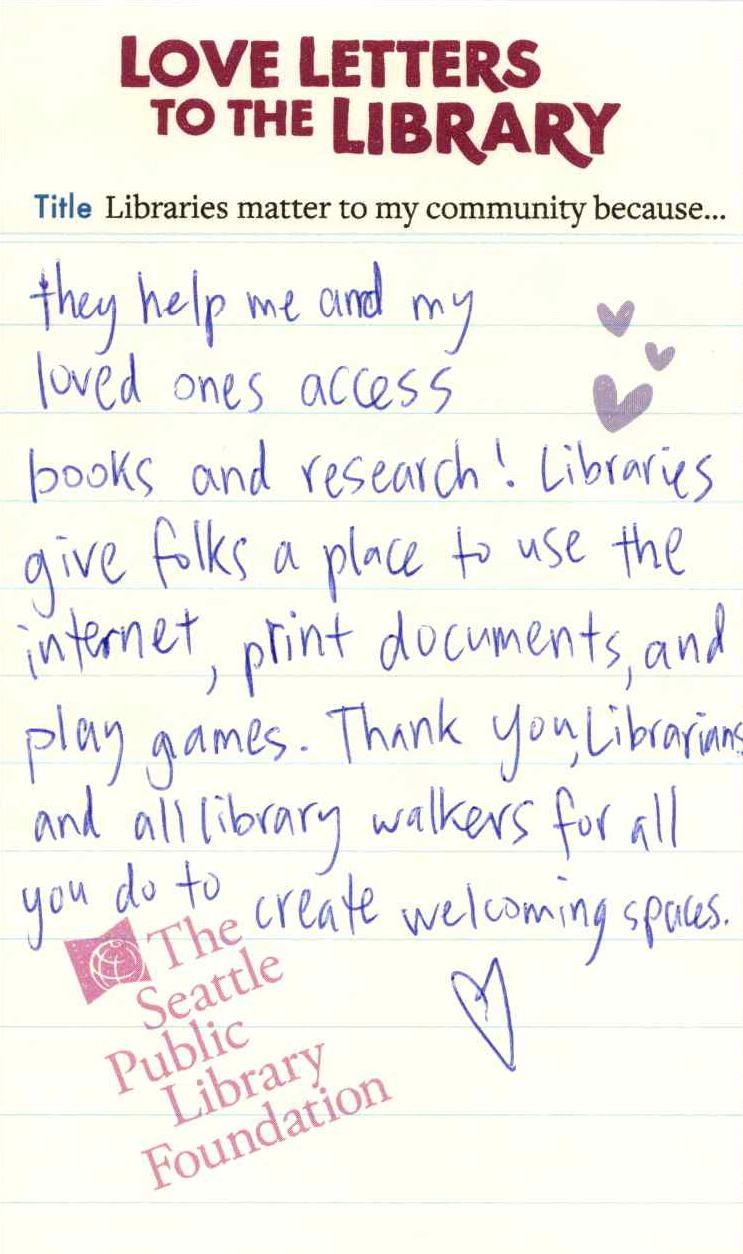 LOVE LETTERS
TO THE LIBRARY
Title Libraries matter to my community because...
they help me and my
loved ones access
books and research! Libraries
give folks a place to use the
internet, print documents, and
play games. Thank you, Librarians
and all library walkers for all
you do to create welcoming spaces.
The
Seattle
Public
Library
Foundation